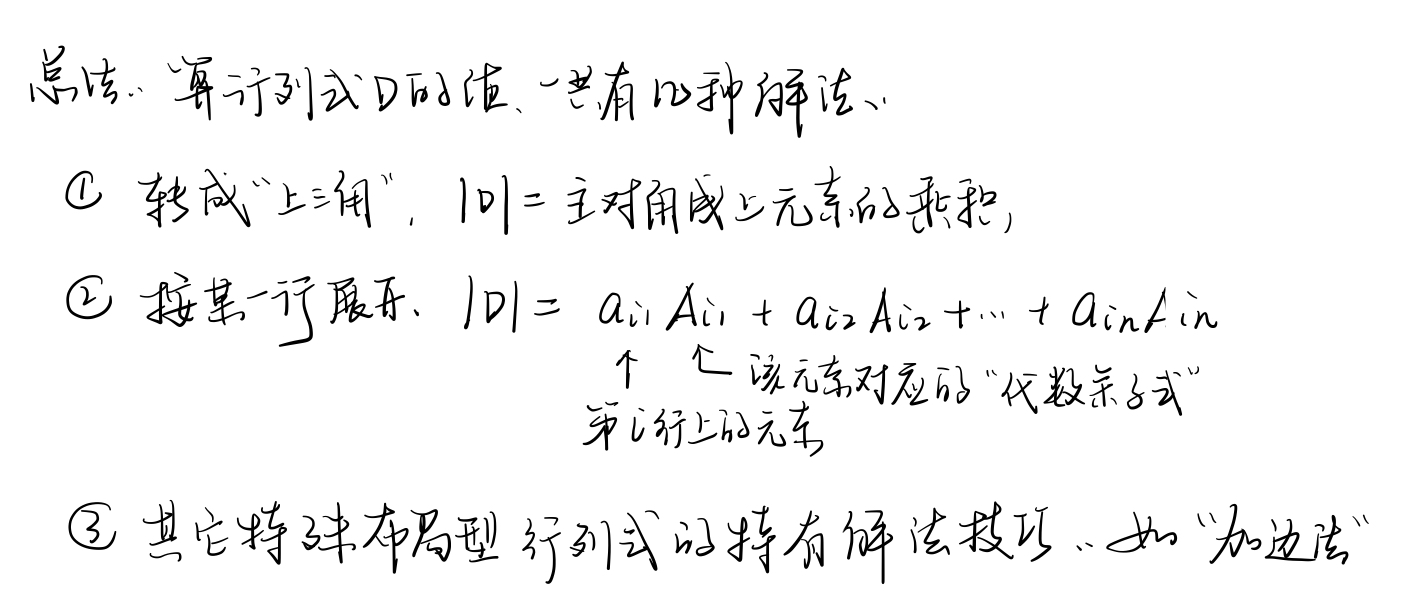 总法:算行列式D的值、一共有几种解法:
① 转成“上三角”, |D| = 主对角线上元素的乘积,
② 按某一行展开、|D| = ai1 Ai1 + ai2 Ai2 + … + ain Ain
↑ ↑ 该元素对应的“代数余子式”
第i行上的元素
③ 其它特殊布局型行列式的特有解法技巧:如“加边法”